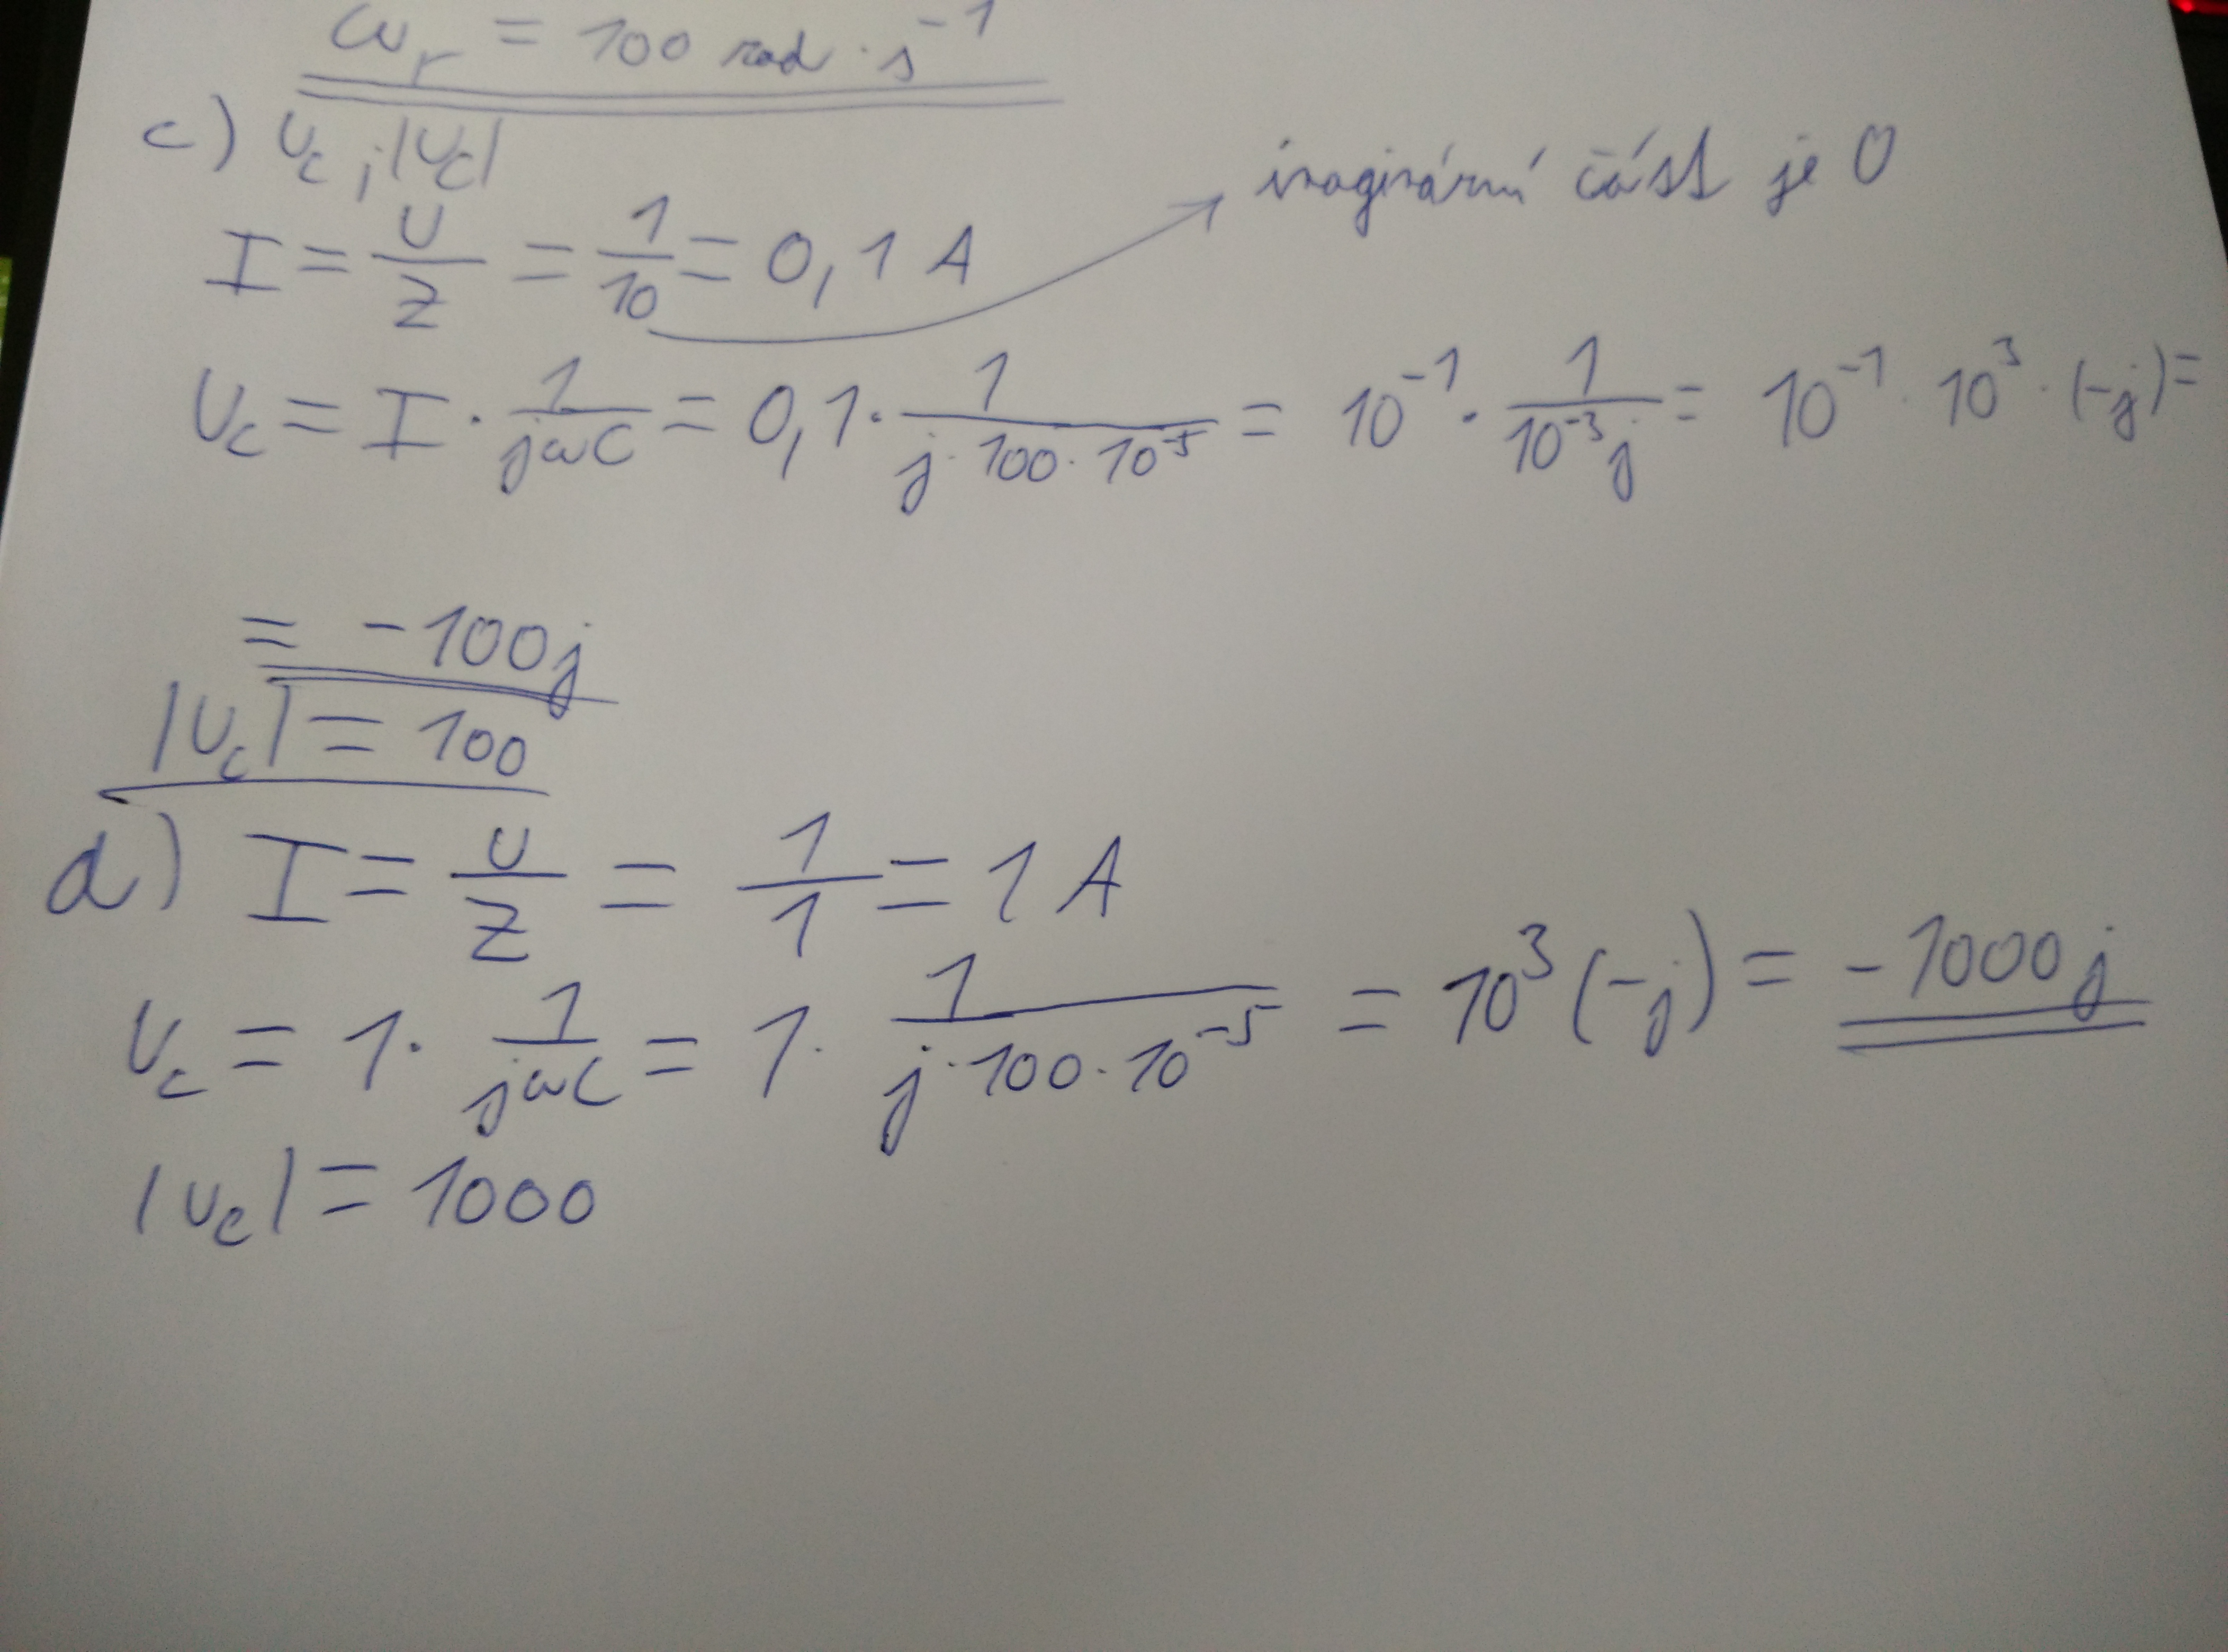 ωr = 100 rad · s⁻¹
c) Uc, |Uc|
imaginární část je 0
I = U/Z = 1/10 = 0,1 A
Uc = I · 1/jωC = 0,1 · 1/j·100·10⁻⁵ = 10⁻¹ · 1/10⁻³j = 10⁻¹ · 10³ · (-j) =
= -100j
|Uc| = 100
d) I = U/Z = 1/1 = 1 A
Uc = 1 · 1/jωC = 1 · 1/j·100·10⁻⁵ = 10³ (-j) = -1000j
|Uc| = 1000